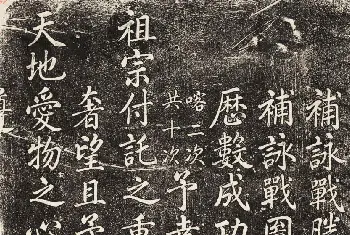 補詠戰勝
補詠戰圖
歷數成功
喀二次
共十次
予
祖宗付託之重
奢望且予
天地愛物之心